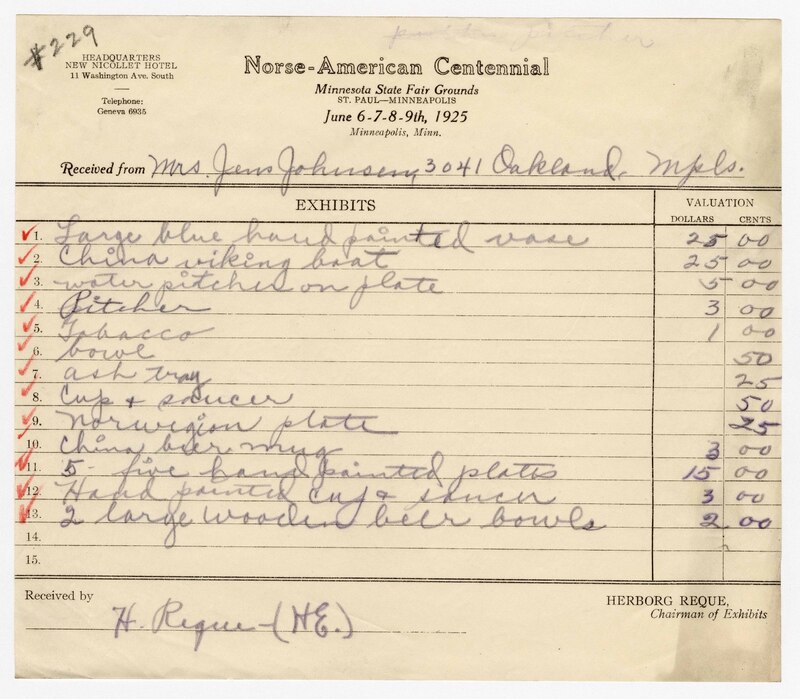 #229
HEADQUARTERS
NEW NICOLLET HOTEL
11 Washington Ave. South
Telephone:
Geneva 6935
Norse-American Centennial
Minnesota State Fair Grounds
ST. PAUL—MINNEAPOLIS
June 6-7-8-9th, 1925
Minneapolis, Minn.
Received from Mrs. Jens Johnsen, 3041 Oakland, Mpls.
EXHIBITS VALUATION
DOLLARS CENTS
1. Large blue hand painted vase 25 00
2. China viking boat 25 00
3. water pitcher on plate 5 00
4. Pitcher 3 00
5. Tobacco 1 00
6. bowl 50
7. ash tray 25
8. Cup & saucer 50
9. Norwegian plate 25
10. China beer mug 3 00
11. 5 - five hand painted plates 15 00
12. Hand painted cup & saucer 3 00
13. 2 large wooden beer bowls 2 00
14.
15.
Received by H. Reque - (HE.)
HERBORG REQUE,
Chairman of Exhibits